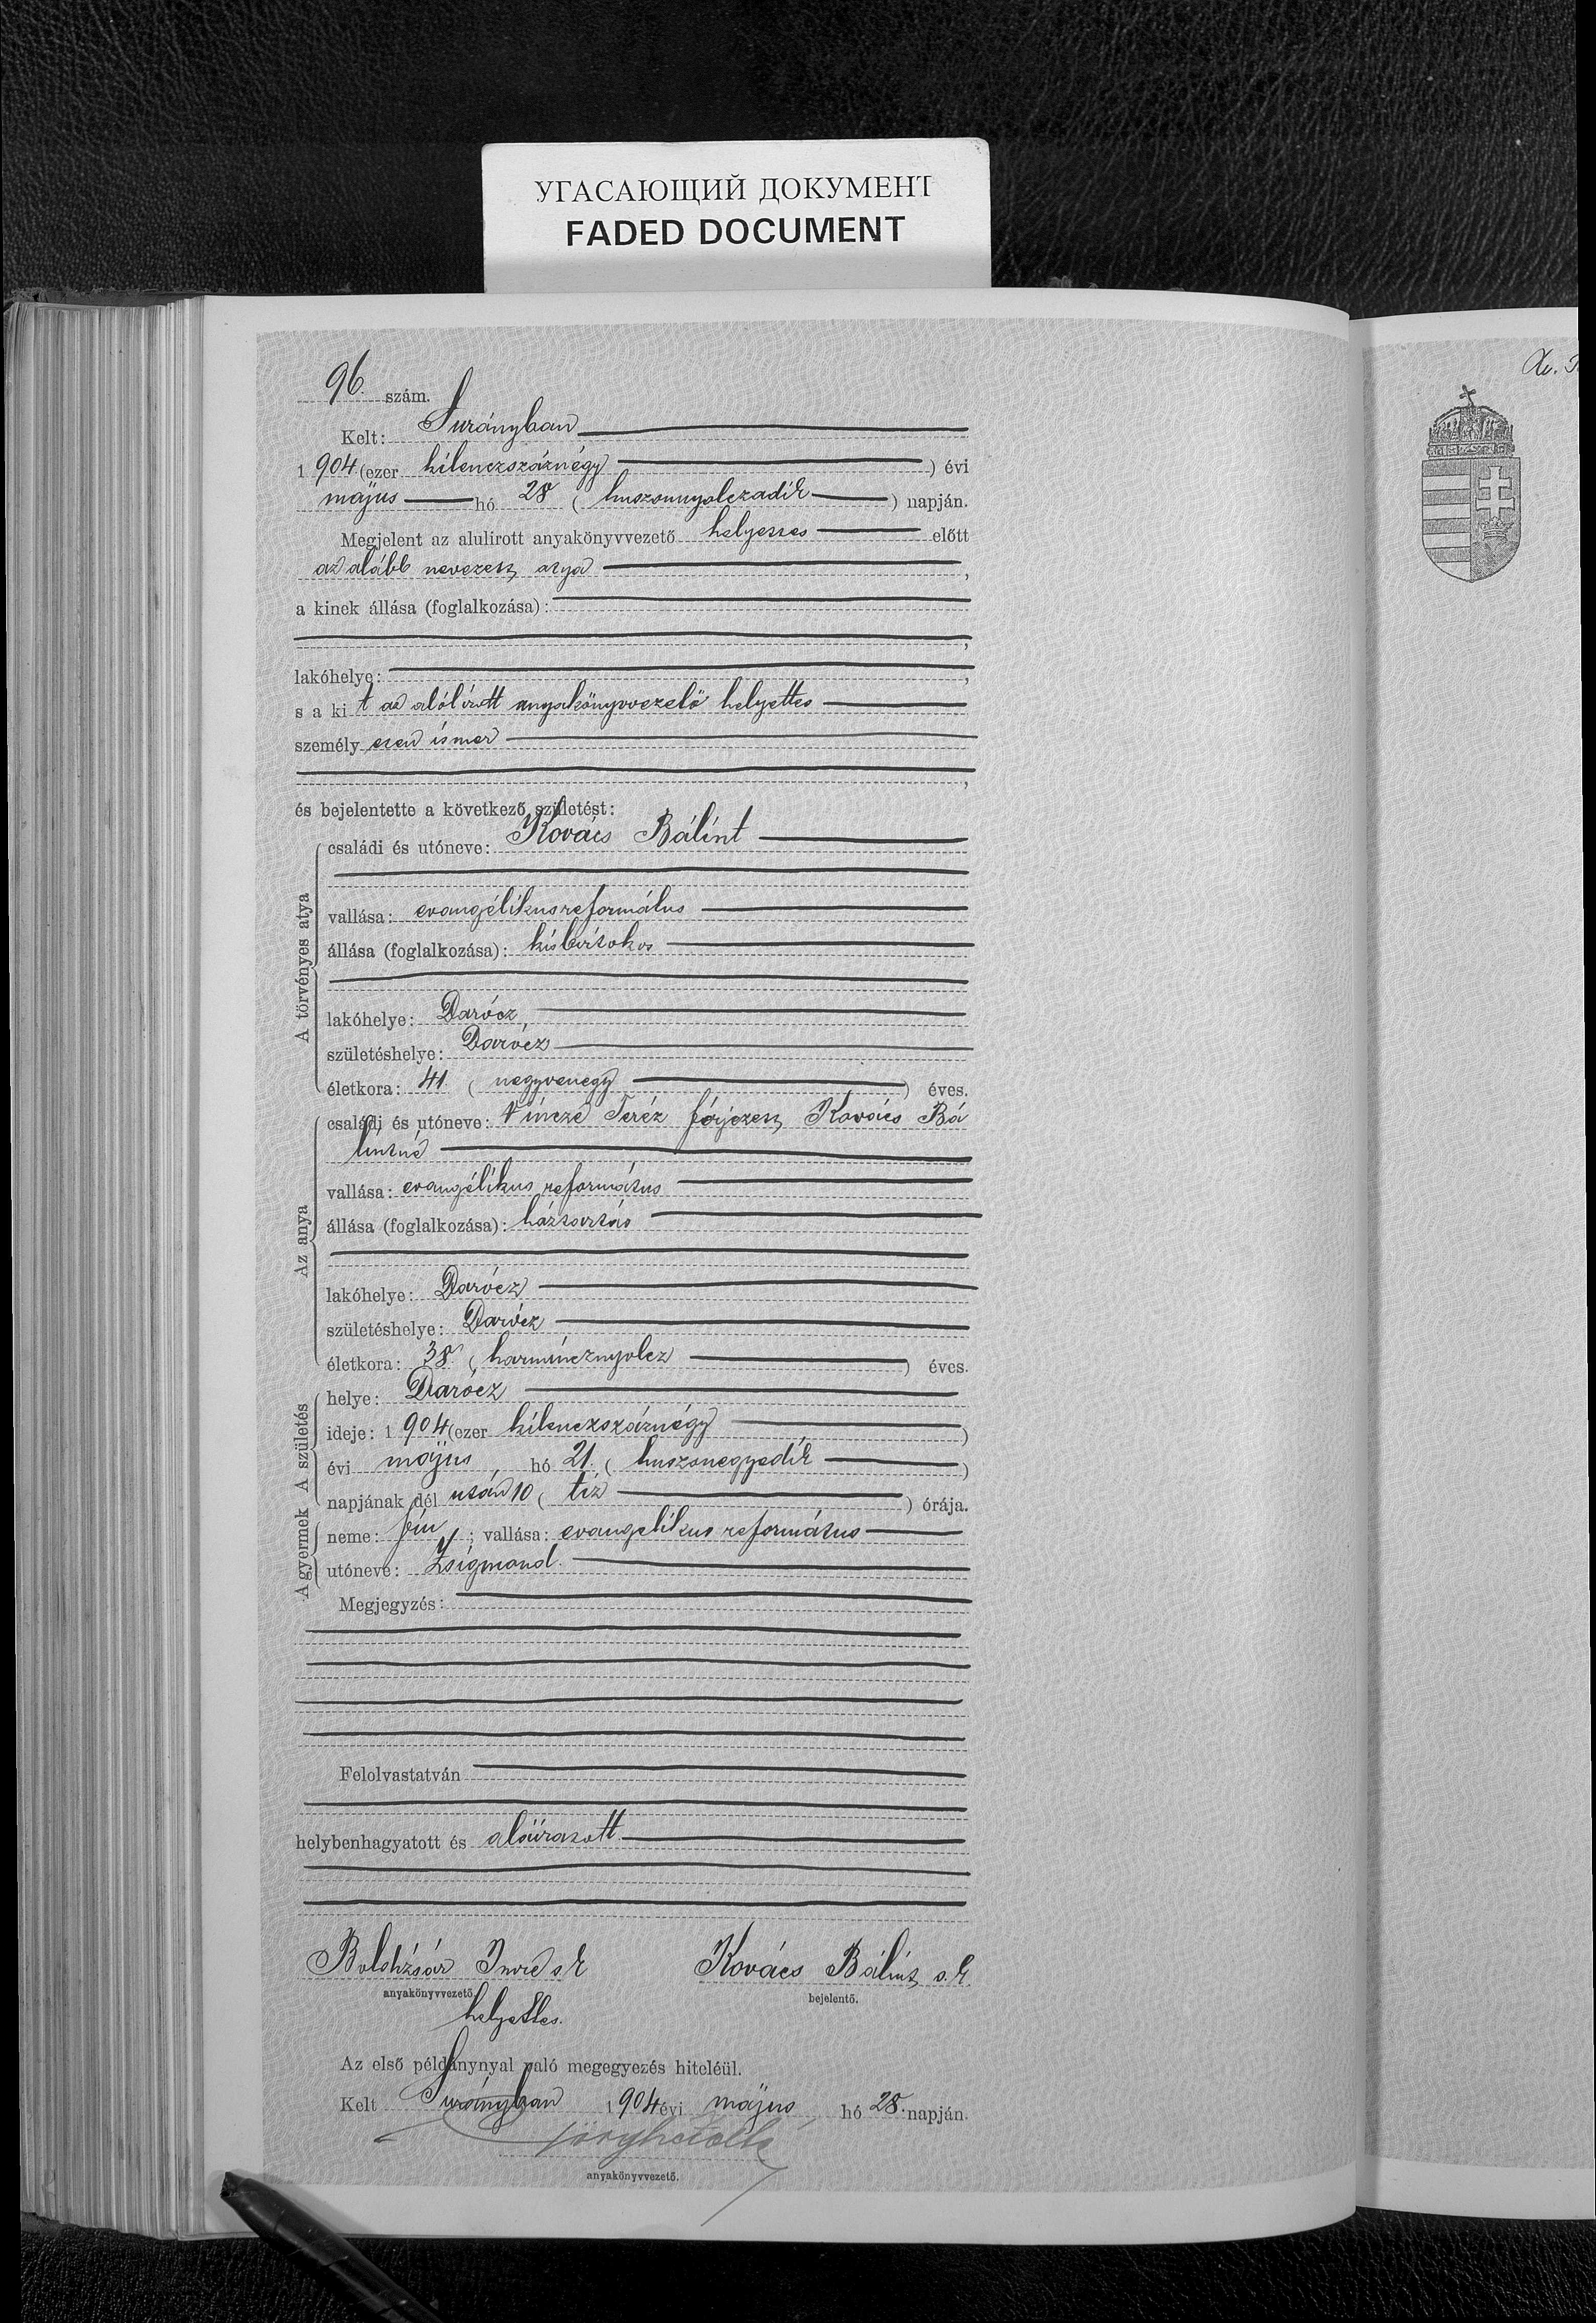 УГАСАЮЩИЙ ДОКУМЕНТ
FADED DOCUMENT
96. szám.
Kelt: Surányban
1904 (ezer kilenczszáznégy) évi
május hó 28 (huszonnyolczadik) napján.
Megjelent az alulirott anyakönyvvezető helyettes előtt
az alább nevezett atya,
a kinek állása (foglalkozása):
,
lakóhelye: ,
s a kit az alólirott anyakönyvvezető helyettes
személyesen ismer
,
és bejelentette a következő születést:
A törvényes atya
családi és utóneve: Kovács Bálint
vallása: evangélikusreformátus
állása (foglalkozása): kisbirtokos
lakóhelye: Darócz
születéshelye: Darócz
életkora: 41. (negyvenegy) éves.
Az anya
családi és utóneve: Vincze Teréz férjezett Kovács Bá
lintné
vallása: evangélikus református
állása (foglalkozása): háztartás
lakóhelye: Darócz
születéshelye: Darócz
életkora: 38. (harmincznyolcz) éves.
A születés
helye: Darócz
ideje: 1904 (ezer kilenczszáznégy)
évi május hó 21. (huszonegyedik)
napjának dél után 10 (tíz) órája.
A gyermek
neme: fiu; vallása: evangelikus református
utóneve: Zsigmond.
Megjegyzés:
Felolvastatván
helybenhagyatott és aláiratott
Imre s k Kovács Bálint s. k.
anyakönyvvezető bejelentő.
helyettes.
Az első példánynyal való megegyezés hiteléül.
Kelt Surányban 1904 évi május hó 28. napján.
anyakönyvvezető.